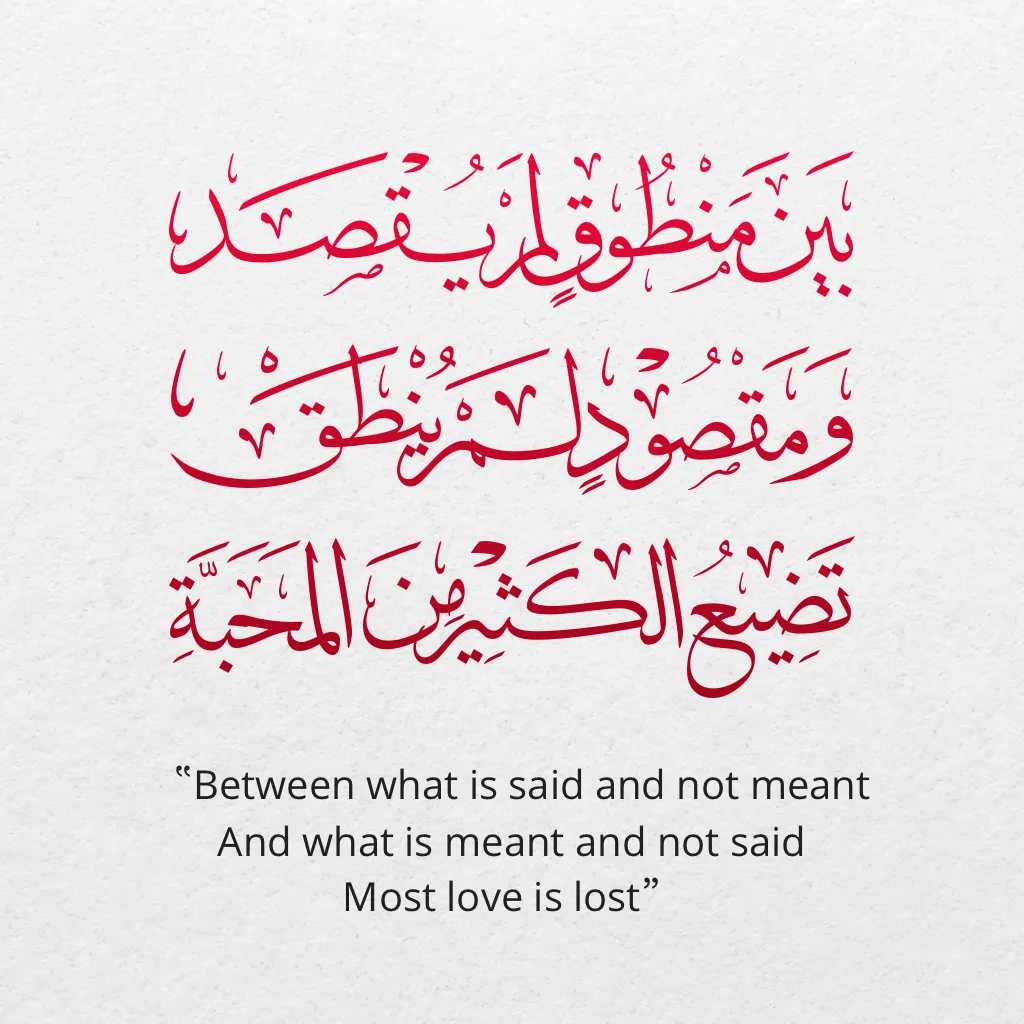 بَينَ مَنْطُوقٍ لَمْ يُقْصَدْ
وَمَقْصُودٍ لَمْ يُنْطَقْ
تَضِيعُ الكَثِيرُ مِنَ المَحَبَّةِ
“Between what is said and not meant
And what is meant and not said
Most love is lost”